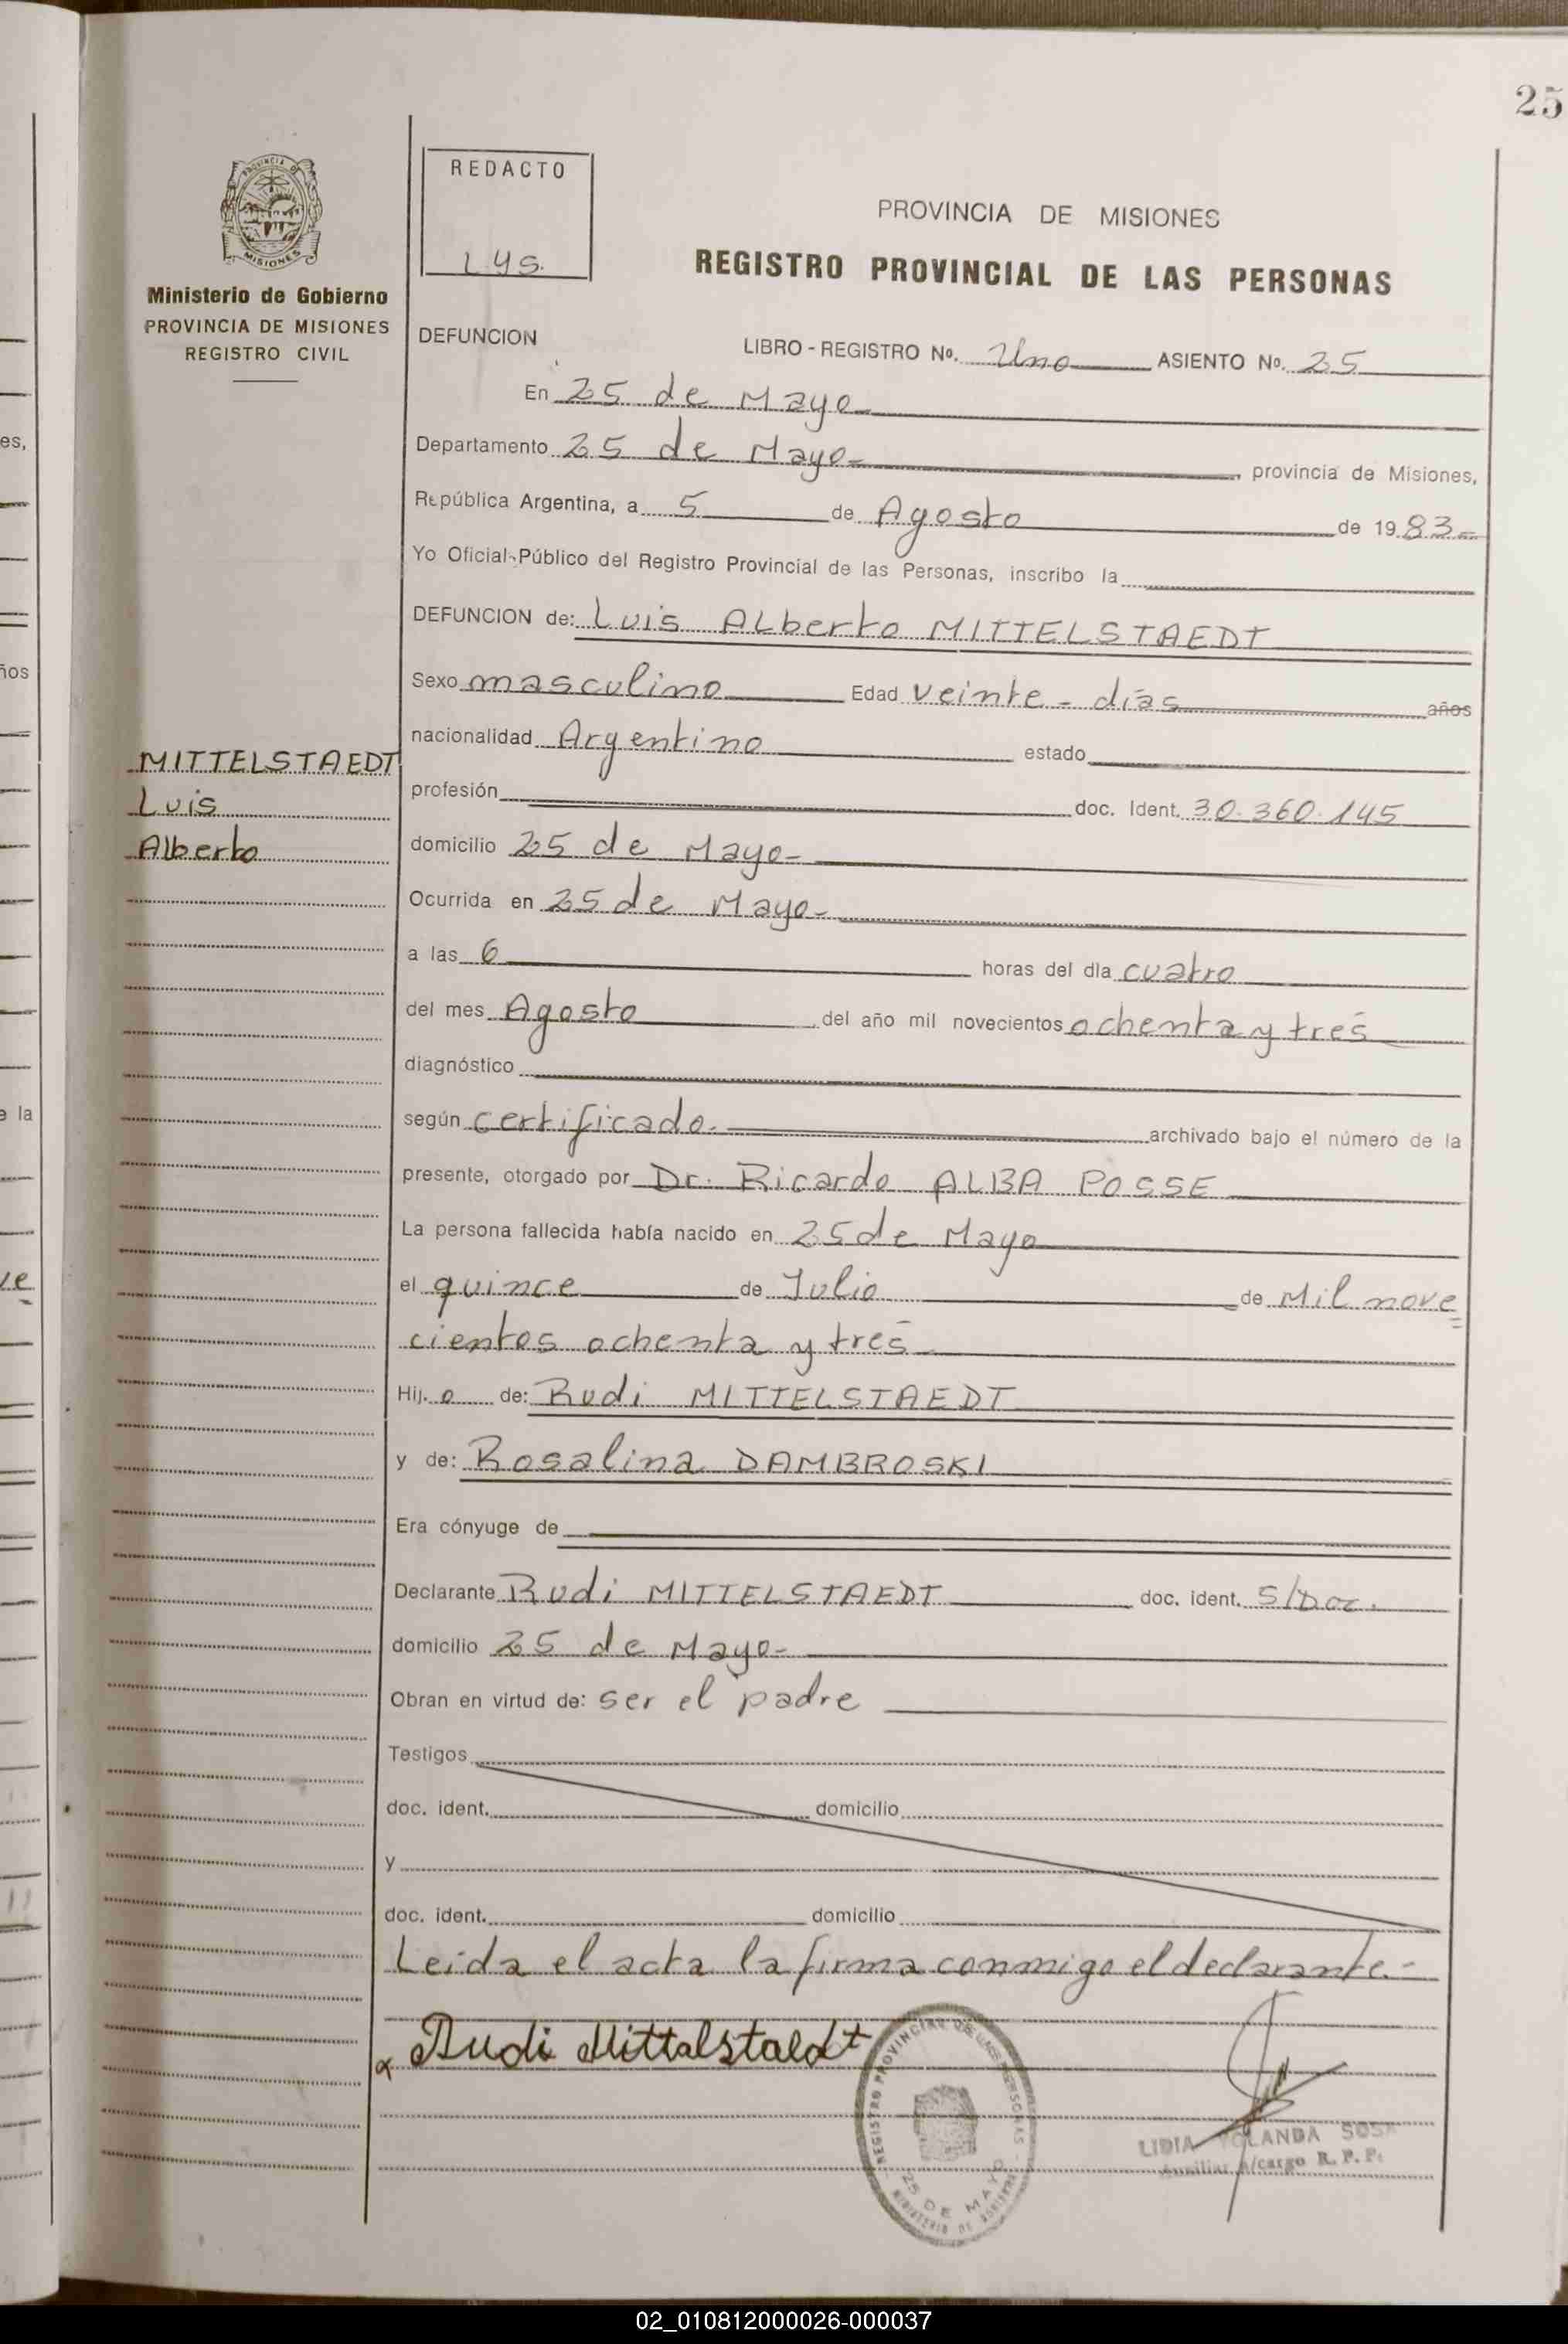 25
PROVINCIA DE
MISIONES
Ministerio de Gobierno
PROVINCIA DE MISIONES
REGISTRO CIVIL
REDACTO
L.Y.S.
PROVINCIA DE MISIONES
REGISTRO PROVINCIAL DE LAS PERSONAS
DEFUNCION
LIBRO - REGISTRO No. Uno ASIENTO No. 25
En 25 de Mayo
Departamento 25 de Mayo- , provincia de Misiones,
República Argentina, a 5 de Agosto de 1983-
Yo Oficial Público del Registro Provincial de las Personas, inscribo la
DEFUNCION de: Luis Alberto MITTELSTAEDT
Sexo masculino Edad veinte - días años
nacionalidad Argentino estado
profesión doc. Ident. 30.360.145
domicilio 25 de Mayo-
Ocurrida en 25 de Mayo-
a las 6 horas del día cuatro
del mes Agosto del año mil novecientos ochenta y tres
diagnóstico
según certificado. archivado bajo el número de la
presente, otorgado por Dr. Ricardo ALBA POSSE
La persona fallecida había nacido en 25 de Mayo
el quince de Julio de Mil nove
cientos ochenta y tres
Hij.o de: Rudi MITTELSTAEDT
y de: Rosalina DAMBROSKI
Era cónyuge de
Declarante Rudi MITTELSTAEDT doc. ident. S/Doc.
domicilio 25 de Mayo-
Obran en virtud de: ser el padre
Testigos
doc. ident. domicilio
y
doc. ident. domicilio
Leida el acta la firma conmigo el declarante.-
Rudi Mittalstaldt
MITTELSTAEDT
Luis
Alberto
REGISTRO PROVINCIAL DE LAS PERSONAS
25 DE MAYO
MINISTERIO DE GOBIERNO
LIDIA YOLANDA SOSA
Auxiliar a/cargo R. P. P.
es,
ños
e la
ve
02_010812000026-000037